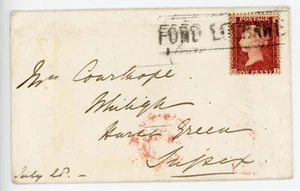 POSTAGE
ONE PENNY
Mrs Courthope
Whiligh
Hurst Green
Sussex
July 25.